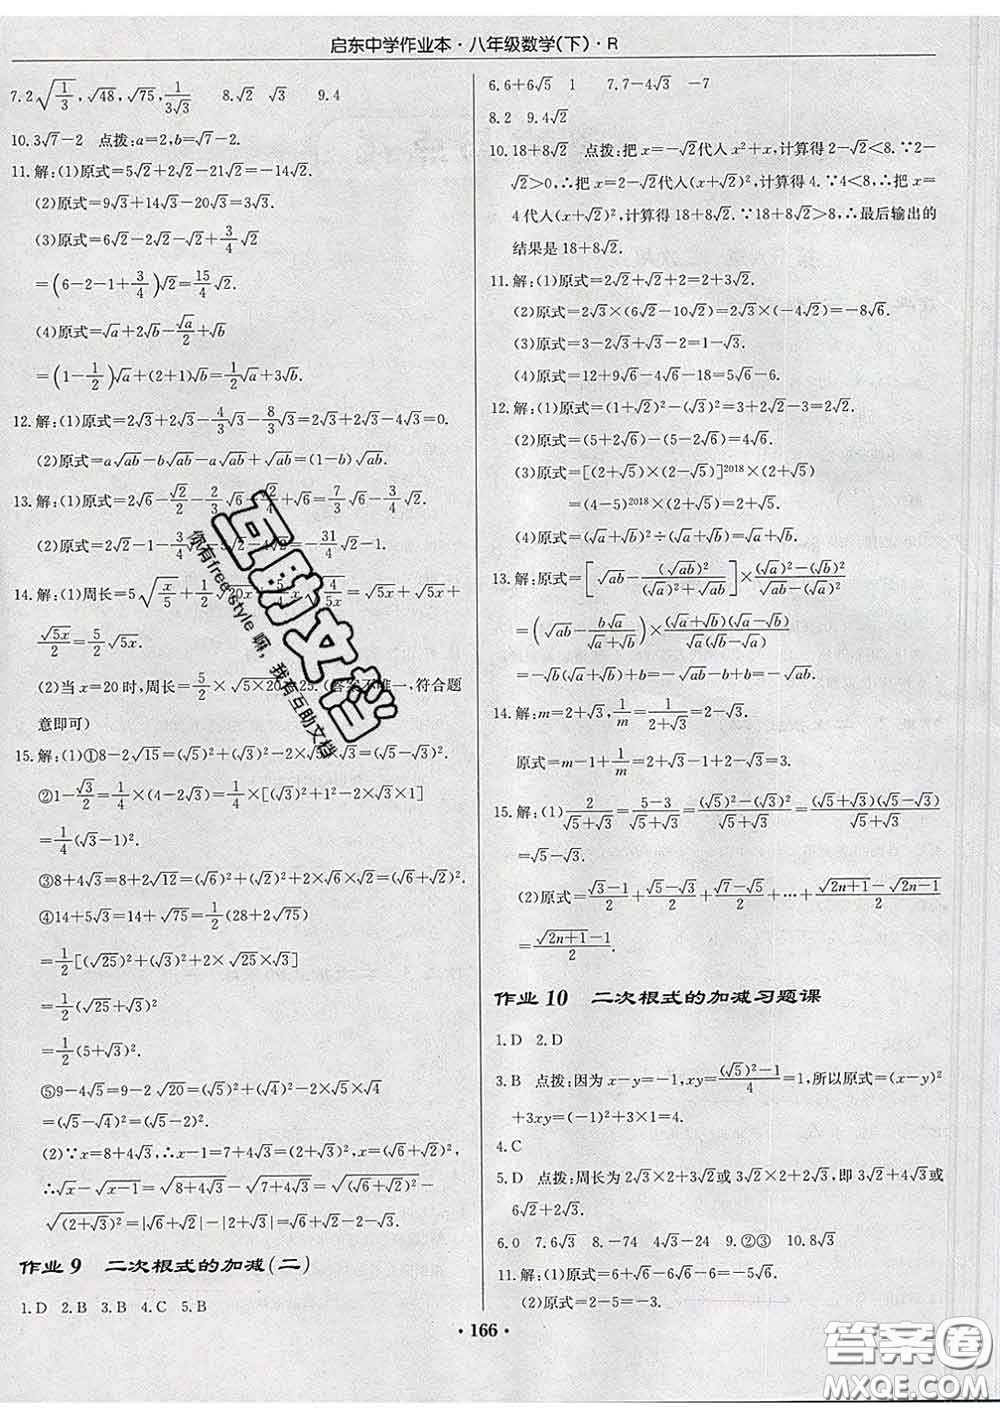 启东中学作业本·八年级数学(下)·R
7.2√(1/3),√48,√75,1/(3√3)  8.√2 √3  9.4
10.3√7−2 点拨:a=2,b=√7−2.
11.解:(1)原式=5√2+2√2−21√2=−14√2.
(2)原式=9√3+14√3−20√3=3√3.
(3)原式=6√2−2√2−√2+(3/4)√2
=(6−2−1+3/4)√2=(15/4)√2.
(4)原式=√a+2√b−√a/2+√b
=(1−1/2)√a+(2+1)√b=(1/2)√a+3√b.
12.解:(1)原式=2√3+2√3−(4/3)√3−(8/3)√3=2√3+2√3−4√3=0.
(2)原式=a√ab−b√ab−a√ab+√ab=(1−b)√ab.
13.解:(1)原式=2√6−√2/2−(2/3)√6−√2/4+√6=(7/3)√6−(3/4)√2.
(2)原式=2√2−1− √2−4√2=−(31/4)√2−1.
14.解:(1)周长=5√(x/5)+(1/2)√20x+ √(4/5x)=√5x+√5x+
√5x/2=(5/2)√5x.
(2)当x=20时,周长=(5/2)×√5×20=25.(答案不唯一,符合题
意即可)
15.解:(1)①8−2√15=(√5)²+(√3)²−2×√5×√3=(√5−√3)².
②1−√3/2=(1/4)×(4−2√3)=(1/4)×[(√3)²+1²−2×√3×1]
=(1/4)(√3−1)².
③8+4√3=8+2√12=(√6)²+(√2)²+2×√6×√2=(√6+√2)².
④14+5√3=14+√75=(1/2)(28+2√75)
=(1/2)[(√25)²+(√3)²+2×√25×√3]
=(1/2)(√25+√3)²
=(1/2)(5+√3)².
⑤9−4√5=9−2√20=(√5)²+(√4)²−2×√5×√4
=(√5−√4)²=(√5−2)².
(2)∵x=8+4√3,∴x−1=7+4√3=(2+√3)²,x=(√6+√2)²,
∴√x−√(x−1)=√(8+4√3)−√(7+4√3)=√(√6+√2)²−
√(2+√3)²=|√6+√2|−|2+√3|=√6+√2−2−√3.
作业9 二次根式的加减(二)
1.D 2.B 3.B 4.C 5.B
6.6+6√5 1  7.7−4√3 −7
8.2 9.4√2
10.18+8√2 点拨:把x=−√2代人x²+x,计算得2−√2<8.∵2−
√2>0,∴把x=2−√2代人(x+√2)²,计算得4.∵4<8,∴再把x=
4代人(x+√2)²,计算得18+8√2.∵18+8√2>8,∴最后输出的
结果是18+8√2.
11.解:(1)原式=2√2+√2+2=2+3√2.
(2)原式=2√3×(6√2−10√2)=2√3×(−4√2)=−8√6.
(3)原式=3−2√3+√3−2=1−√3.
(4)原式=12+9√6−4√6−18=5√6−6.
12.解:(1)原式=(1+√2)²−(√3)²=3+2√2−3=2√2.
(2)原式=(5+2√6)−(5−2√6)=4√6.
(3)原式=[(2+√5)×(2−√5)]²⁰¹⁸×(2+√5)
=(4−5)²⁰¹⁸×(2+√5)=2+√5.
(4)原式=(√a+√b)²÷(√a+√b)=√a+√b.
13.解:原式=[√ab−(√ab)²/((√a)²+√ab)]×((√a)²−(√b)²)/((√a)²−√ab)
=(√ab−b√a/(√a+√b))×(√a+√b)(√a−√b)/(√a(√a−√b))
=√b(√a+√b)−b−√ab=−√ab.
14.解:m=2+√3,1/m=1/(2+√3)=2−√3.
原式=m−1+1/m=2+√3−1+2−√3=3.
15.解:(1)2/(√5+√3)=(5−3)/(√5+√3)=((√5)²−(√3)²)/(√5+√3)=(√5+√3)(√5−√3)/(√5+√3)
=√5−√3.
(2)原式=(√3−1)/2+(√5−√3)/2+(√7−√5)/2+⋯+(√(2n+1)−√(2n−1))/2
=(√(2n+1)−1)/2.
作业10 二次根式的加减习题课
1.D 2.D
3.B 点拨:因为x−y=−1,xy=((√5)²−1)/4=1,所以原式=(x−y)²
+3xy=(−1)²+3×1=4.
4.C
5.D 点拨:周长为2√3×2+3√2或3√2×2+2√3,即3√2+4√3或
6√2+2√3.
6.0 7.6√3 8.−74 24√3−68 9.②③ 10.8√3
11.解:(1)原式=6+√6−6−6√6=−5√6.
(2)原式=2−5=−3.
·166·
互助文档
你有free style嘛，我有互助文档
答案圈
MXQE.COM